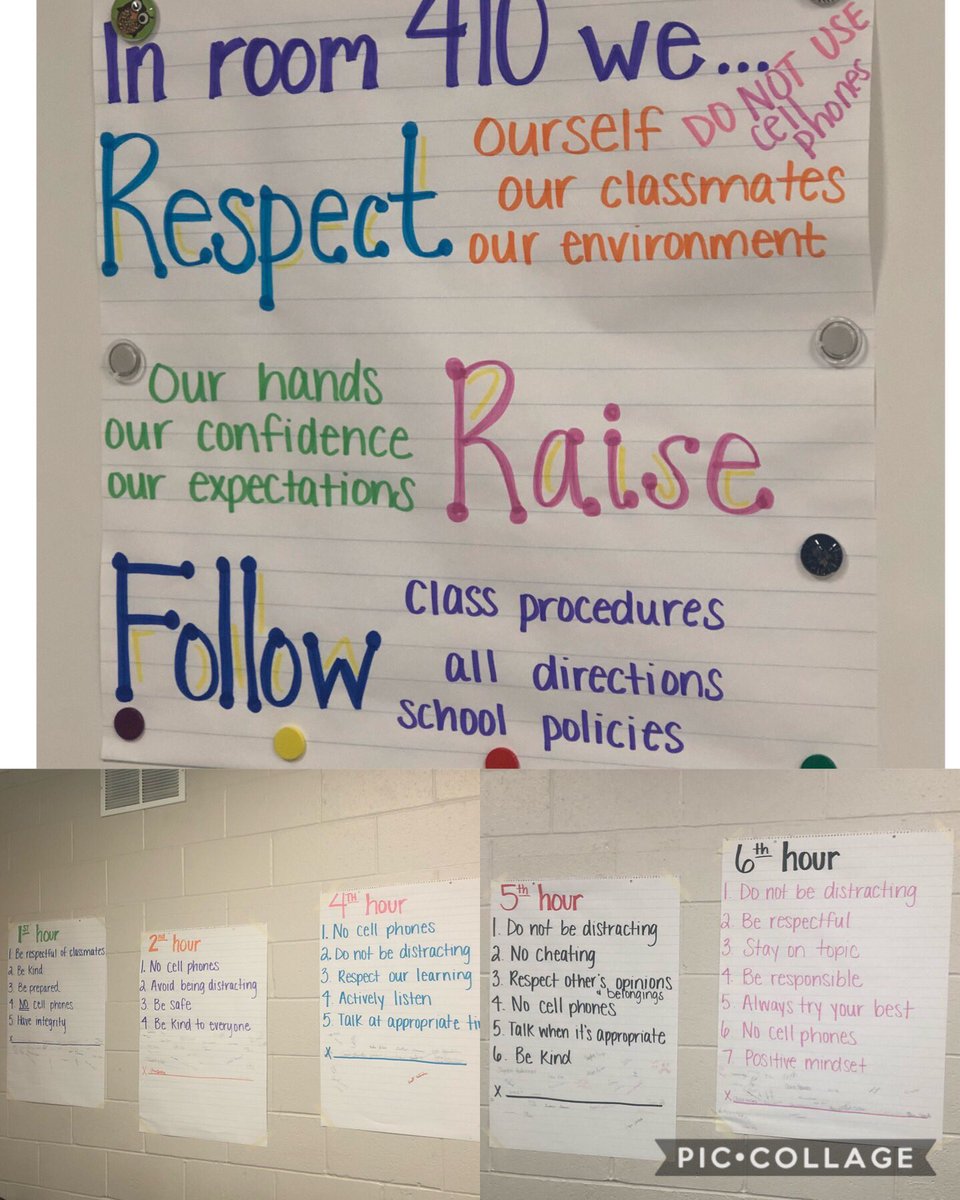 In room 410 we...
DO NOT USE
cell
phones
Respect
ourself
our classmates
our environment
Our hands
our confidence
our expectations
Raise
Follow
class procedures
all directions
school policies
1ST hour
1. Be respectful of classmates
2. Be Kind
3. Be prepared
4. NO cell phones
5. Have integrity
X
2nd hour
1. No cell phones
2. Avoid being distracting
3. Be safe
4. Be Kind to everyone
X
4TH hour
1. No cell phones
2. Do not be distracting
3. Respect our learning
4. Actively listen
5. Talk at appropriate
X
5th hour
1. Do not be distracting
2. No cheating
3. Respect other's opinions
" belongings
4. No cell phones
5. Talk when it's appropriate
6. Be Kind
X
6th hour
1. Do not be distracting
2. Be respectful
3. Stay on topic
4. Be responsible
5. Always try your best
6. No cell phones
7. Positive mindset
X
PIC•COLLAGE